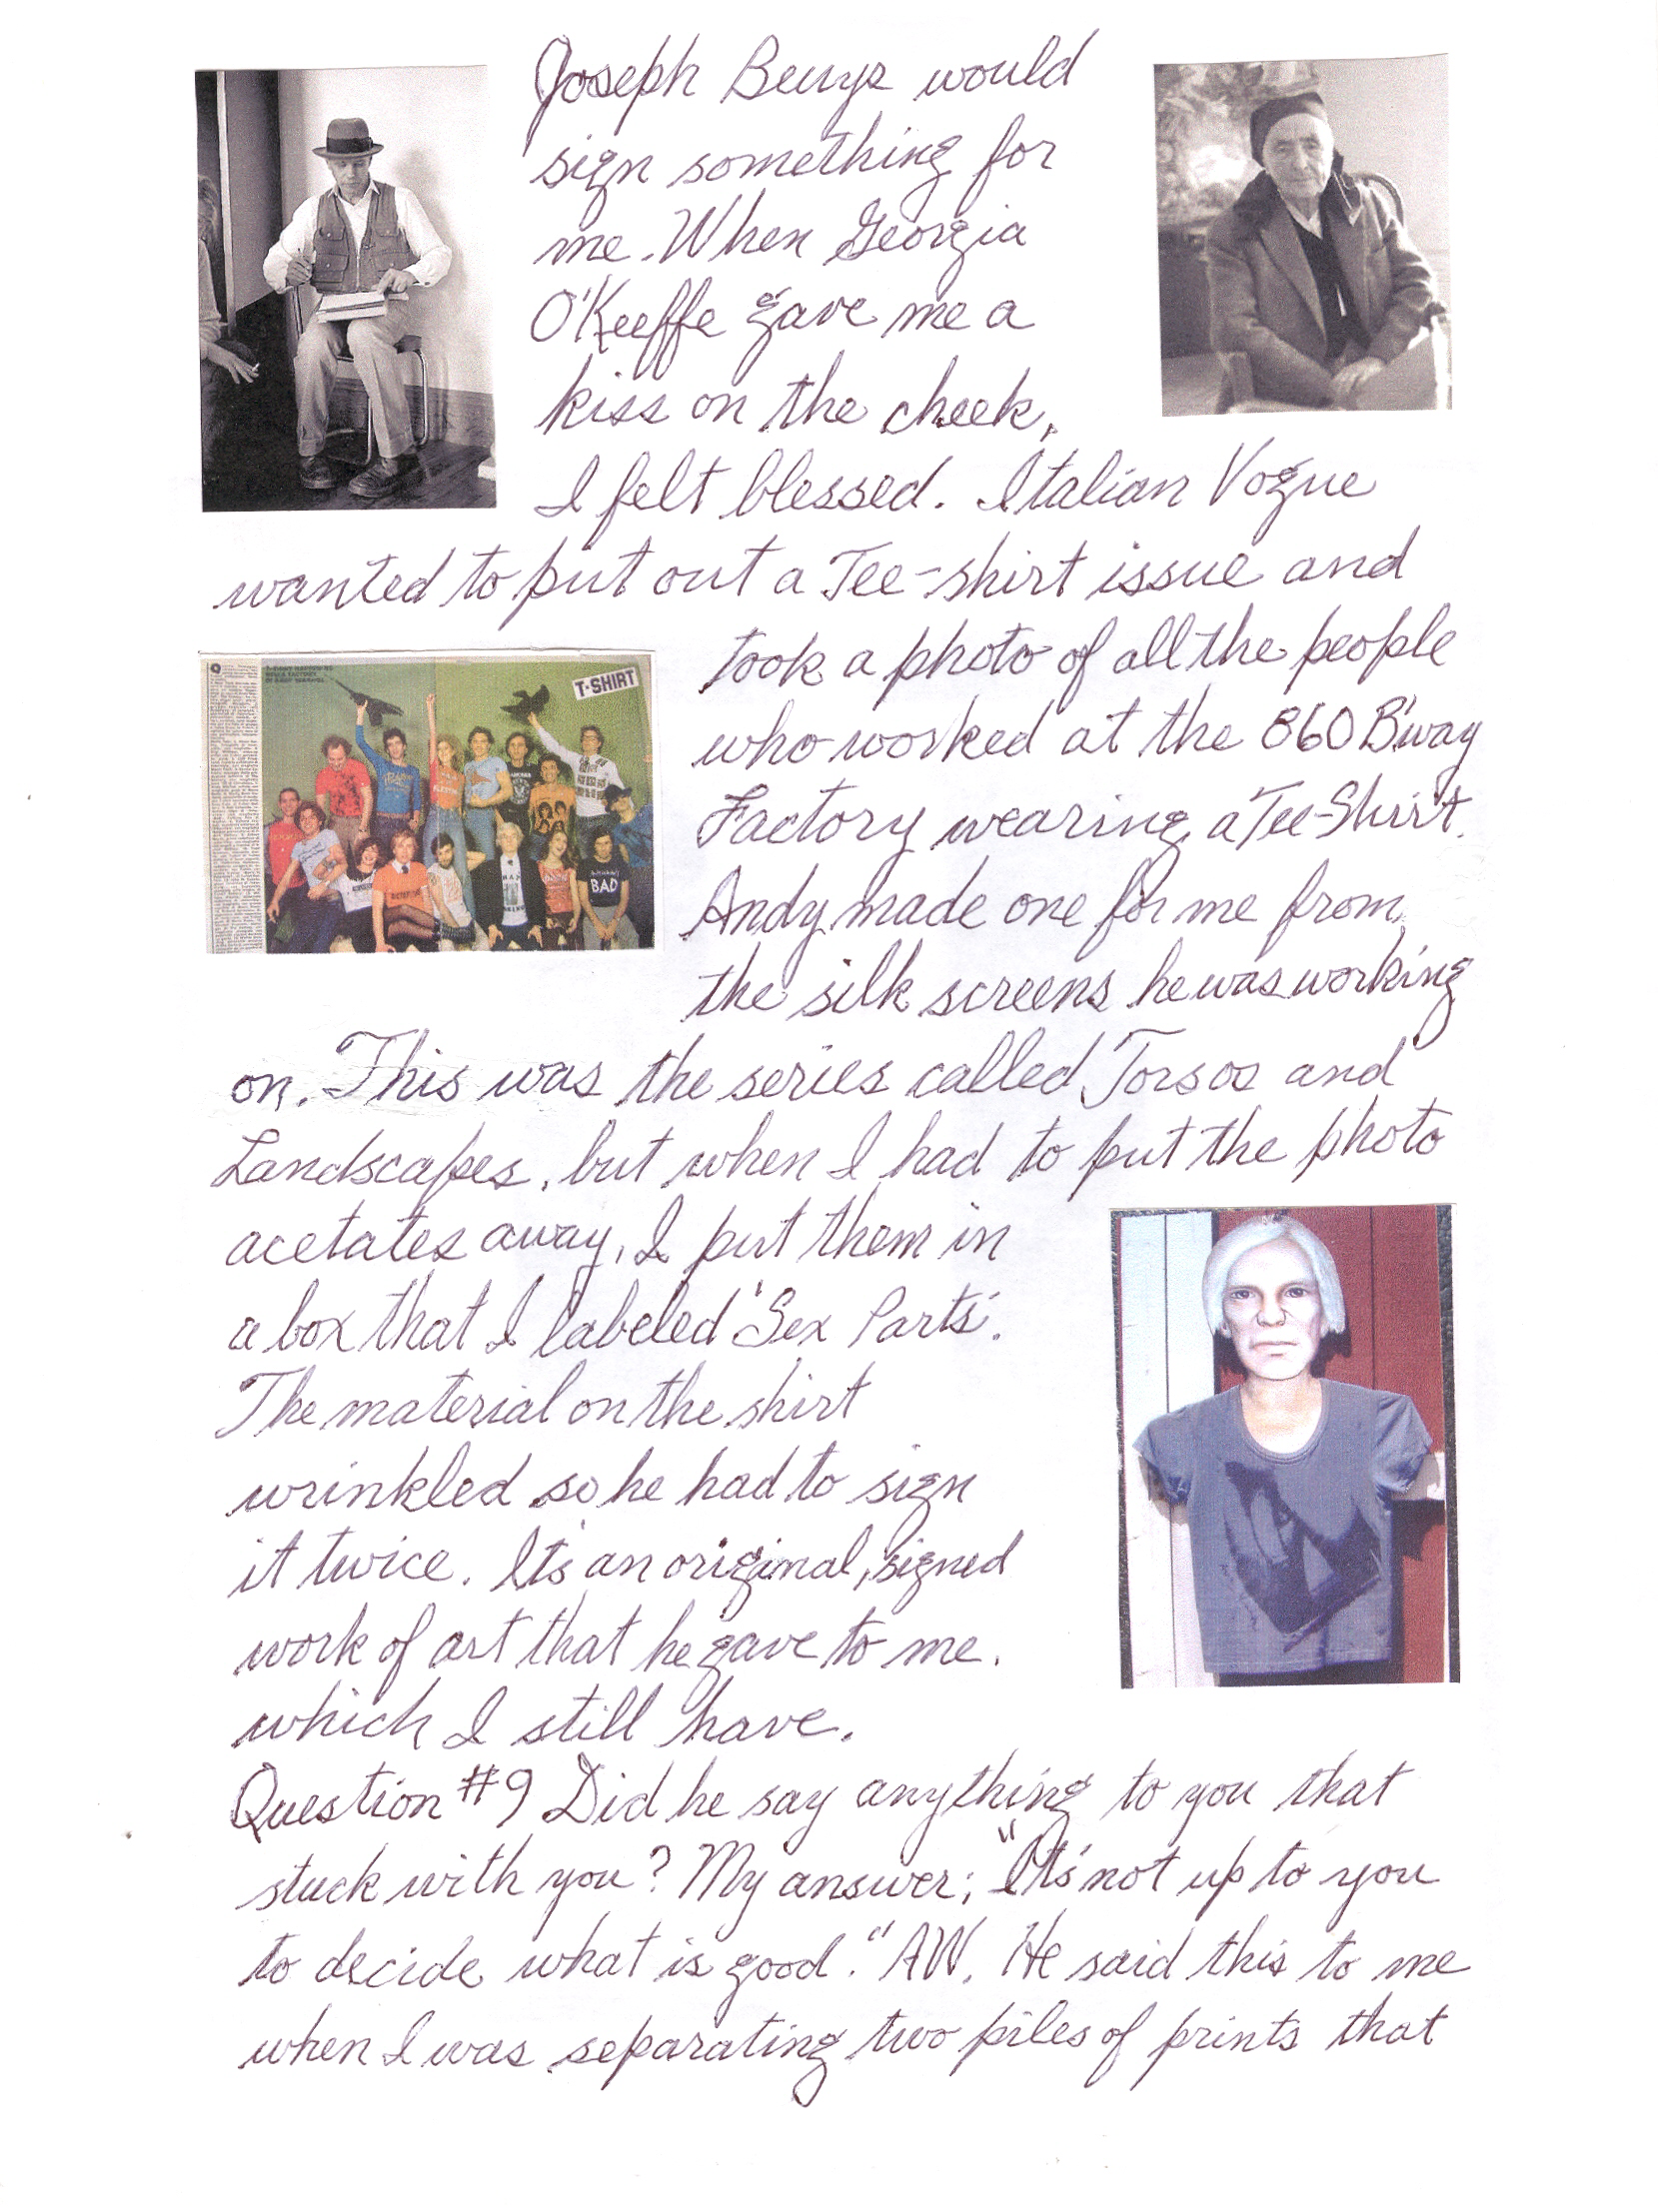 Joseph Beuys would
sign something for
me. When Georgia
O'Keeffe gave me a
kiss on the cheek,
I felt blessed. Italian Vogue
wanted to put out a Tee-shirt issue and
took a photo of all the people
who worked at the 860 B'way
Factory wearing a Tee-Shirt.
Andy made one for me from
the silk screens he was working
on. This was the series called Torsos and
Landscapes, but when I had to put the photo
acetates away, I put them in
a box that I labeled 'Sex Parts'.
The material on the shirt
wrinkled so he had to sign
it twice. It's an original, signed
work of art that he gave to me.
which I still have.
Question #9 Did he say anything to you that
stuck with you? My answer; "It's not up to you
to decide what is good." AW. He said this to me
when I was separating two piles of prints that
T-SHIRT
BAD